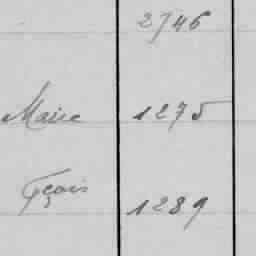 2746
Maire 1275
Fçois 1289